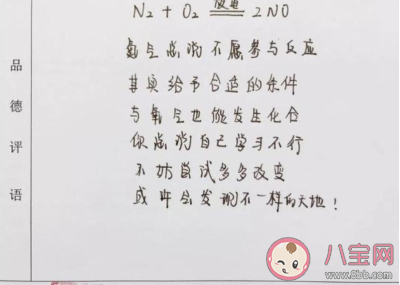 N₂ + O₂ 放电 2NO
氮气总说不愿参与反应
其实给予合适的条件
与氧气也能发生化合
你总说自己学习不行
不妨尝试多多改变
或许会发现不一样的天地！
品德评语
八宝网
www.8bb.com